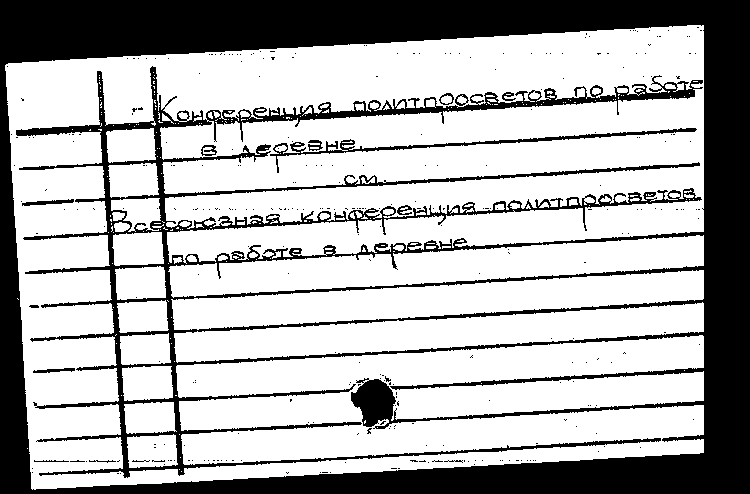 Конференция политпросветов по работе
в деревне.
см.
Всесоюзная конференция политпросветов
по работе в деревне.